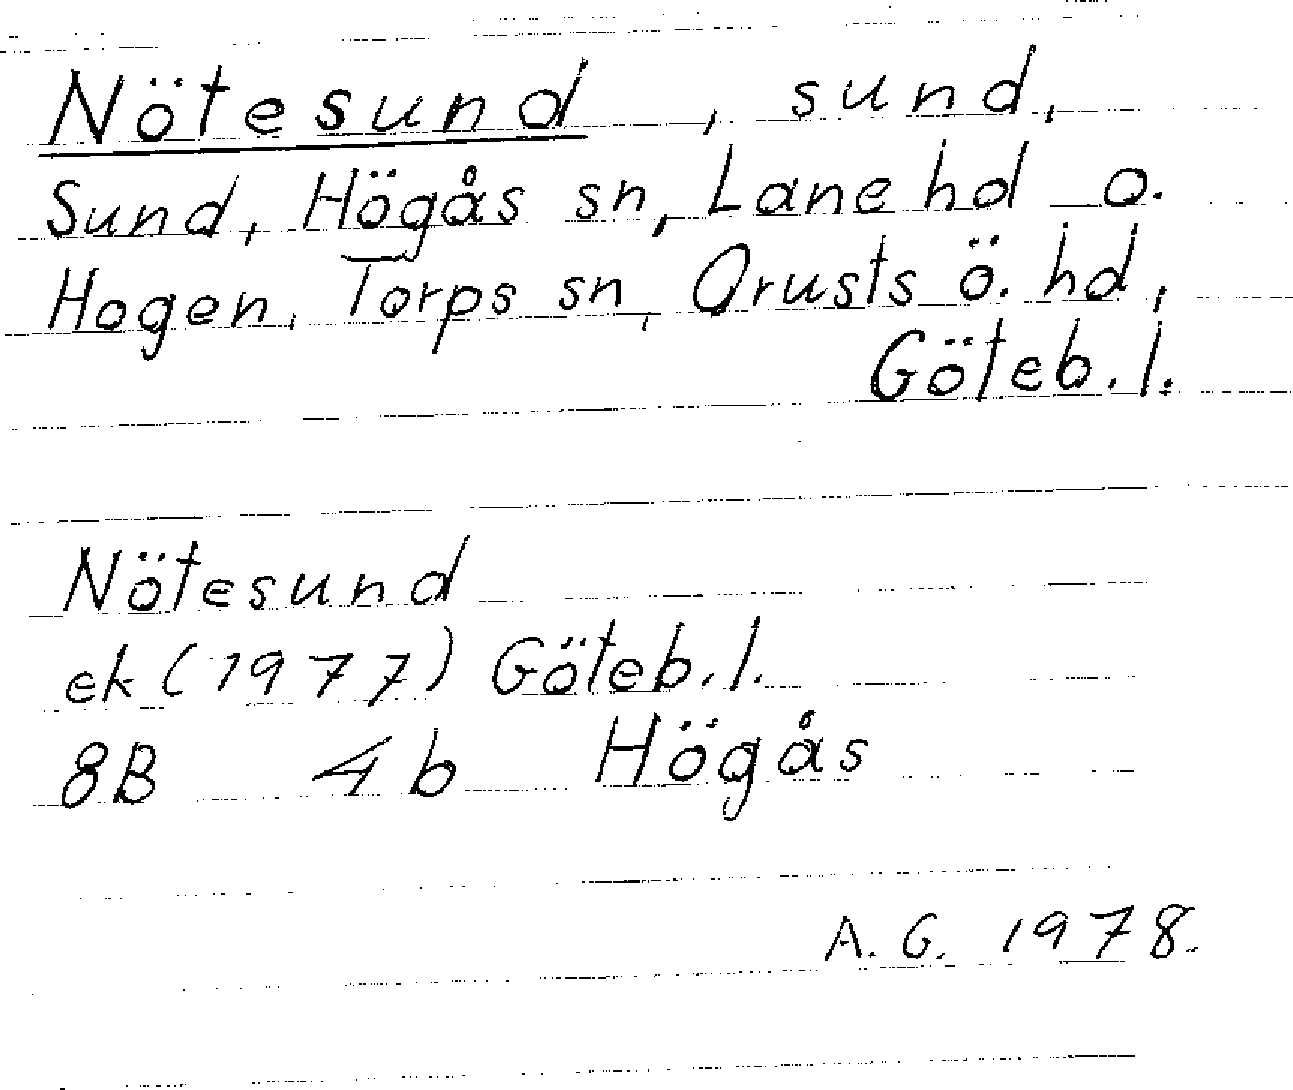 Nötesund, sund,
Sund, Högås sn, Lane hd o.
Hogen, Torps sn, Orusts ö. hd,
Göteb. l.
Nötesund
ek (1977) Göteb. l.
8B 4b Högås
A. G. 1978.